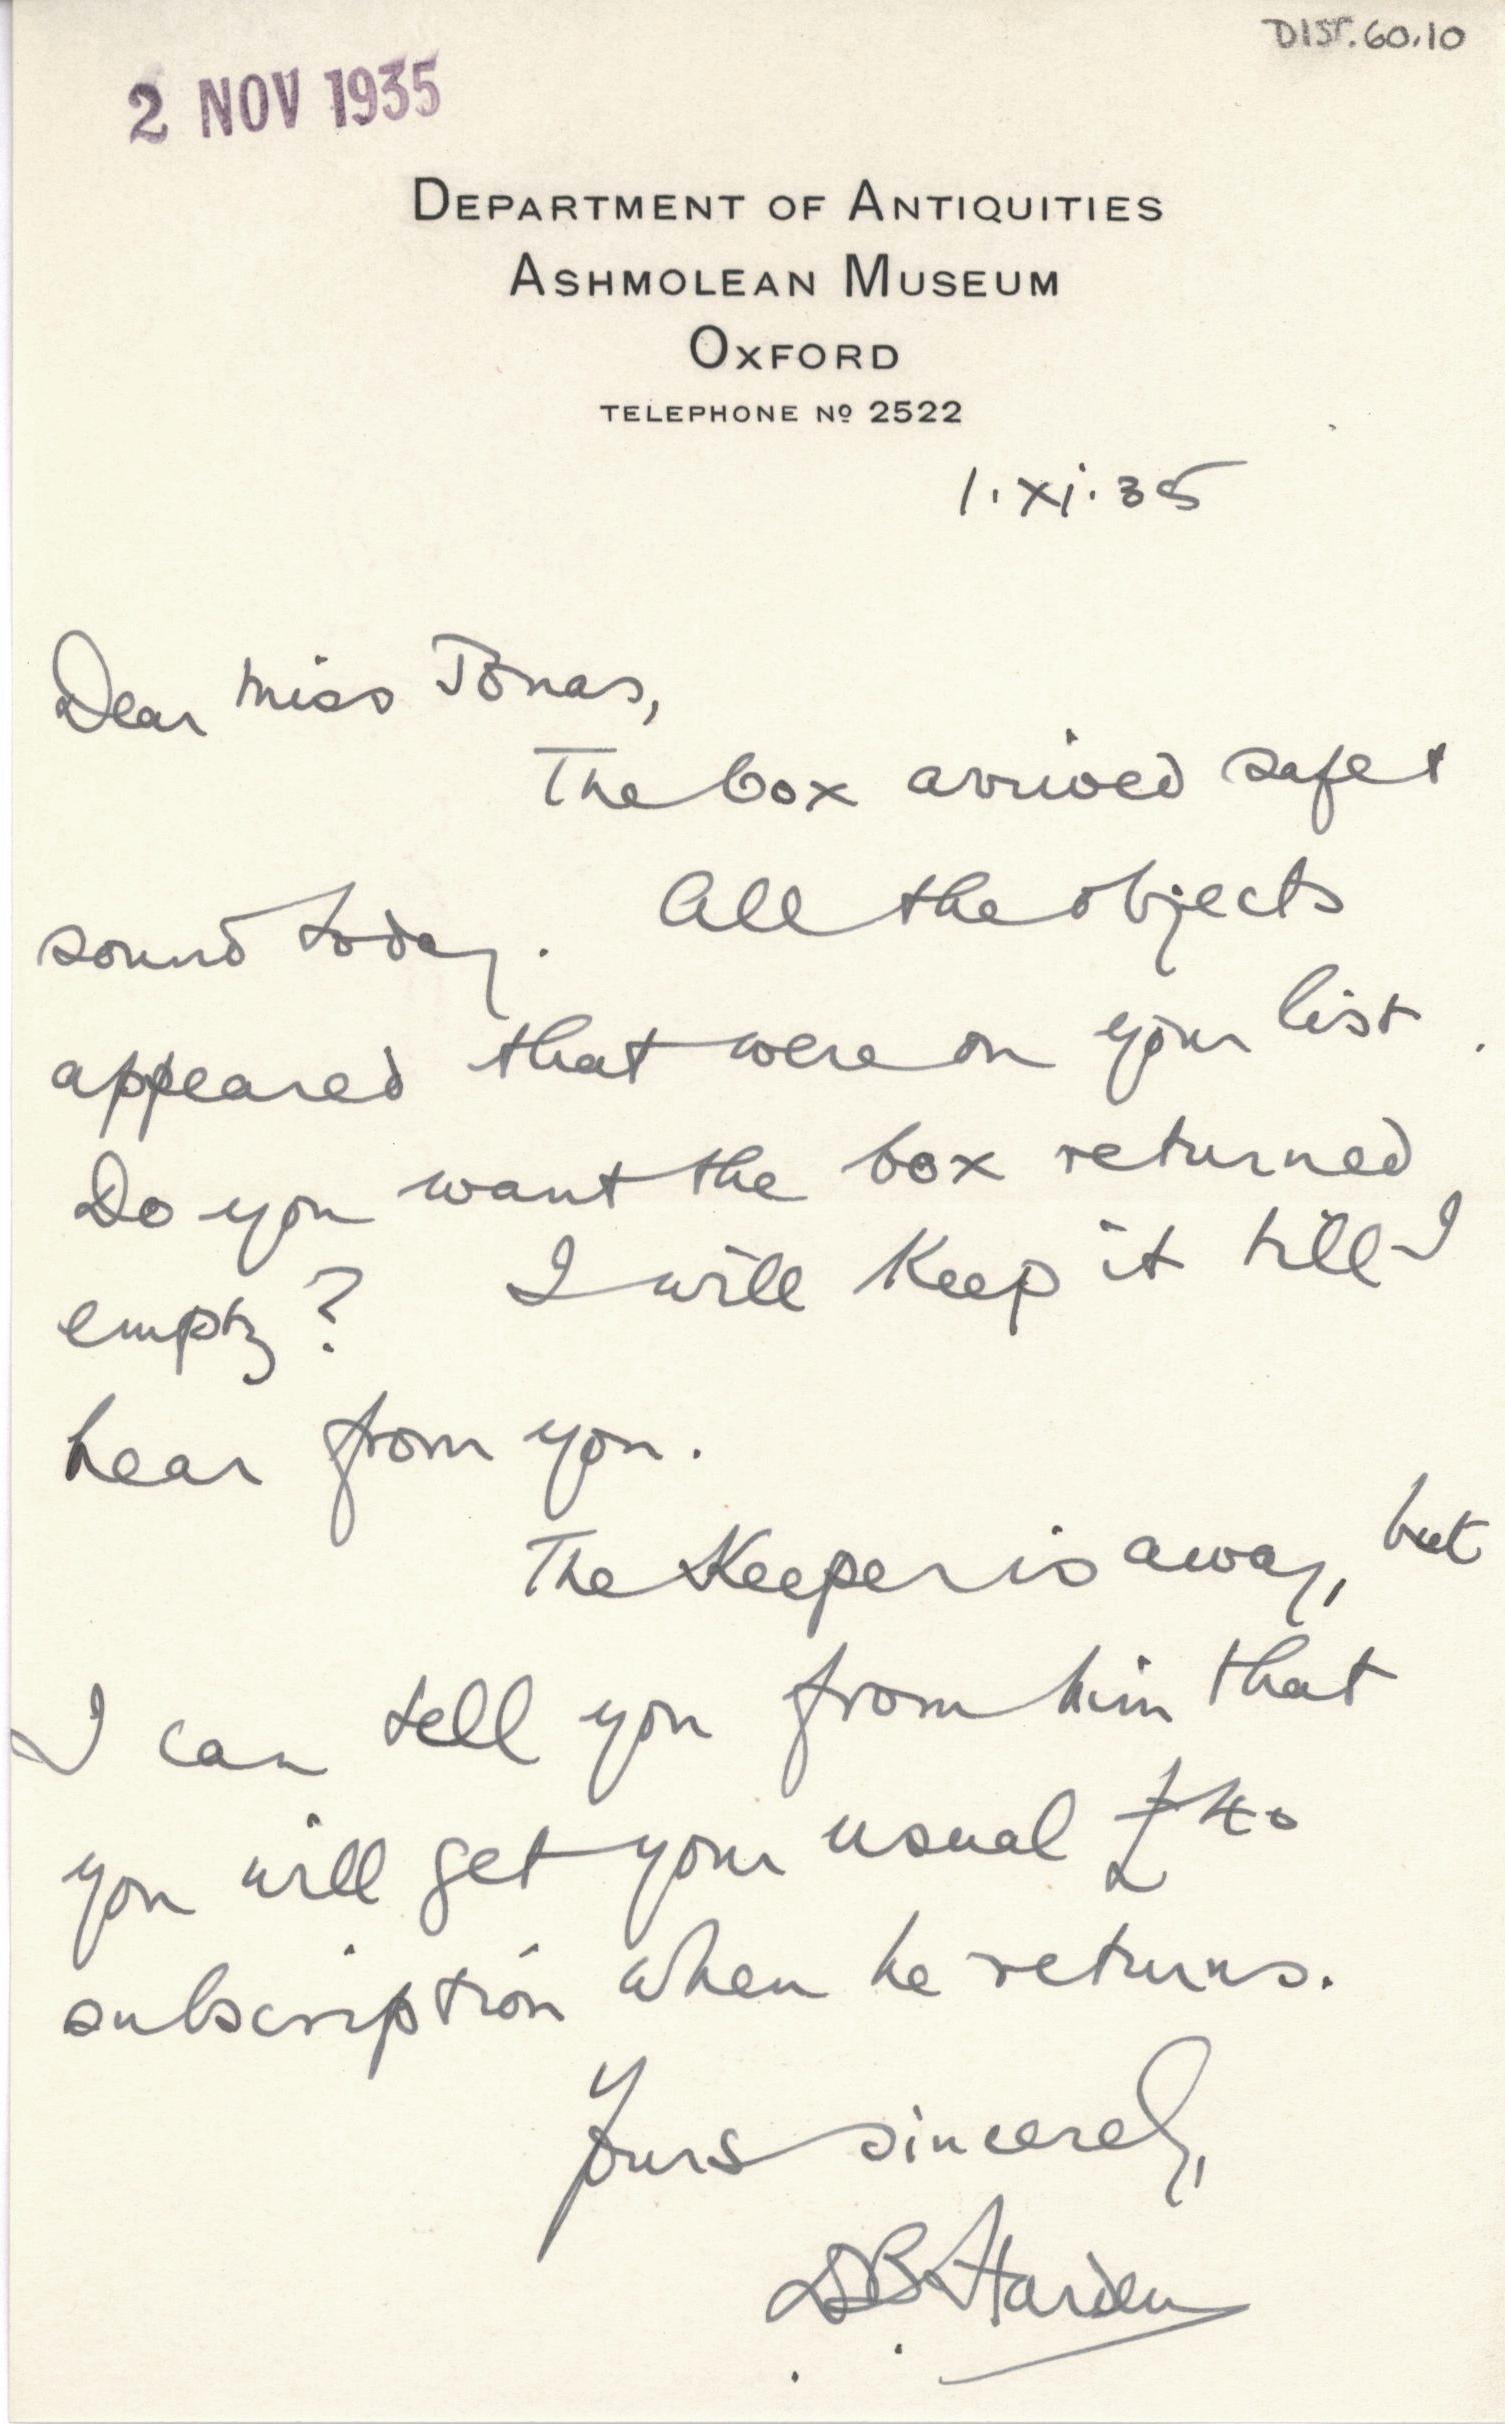 DIST.60.10
2 NOV 1935
DEPARTMENT OF ANTIQUITIES
ASHMOLEAN MUSEUM
OXFORD
TELEPHONE Nº 2522
1.xi.35
Dear Miss Jonas,
The box arrived safe +
sound today. All the objects
appeared that were on your list.
Do you want the box returned
empty? I will keep it till I
hear from you.
The Keeper is away, but
I can tell you from him that
you will get your usual £40
subscription when he returns.
Yours sincerely,
D.B. Harden